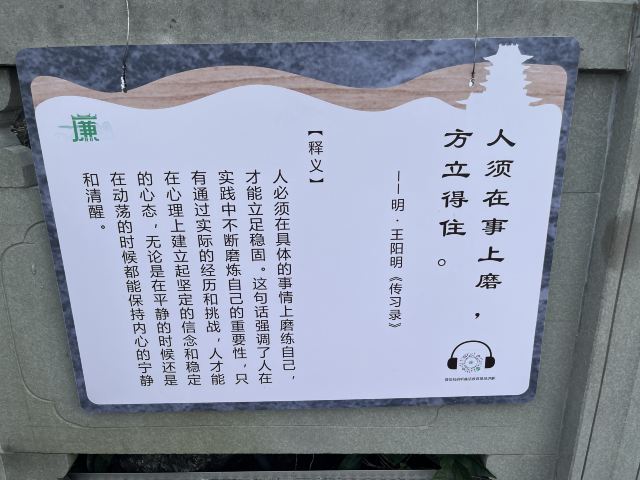 人须在事上磨，
方立得住。
——明·王阳明《传习录》
【释义】
人必须在具体的事情上磨练自己，
才能立足稳固。这句话强调了人在
实践中不断磨炼自己的重要性，只
有通过实际的经历和挑战，人才能
在心理上建立起坚定的信念和稳定
的心态，无论是在平静的时候还是
在动荡的时候都能保持内心的宁静
和清醒。
廉